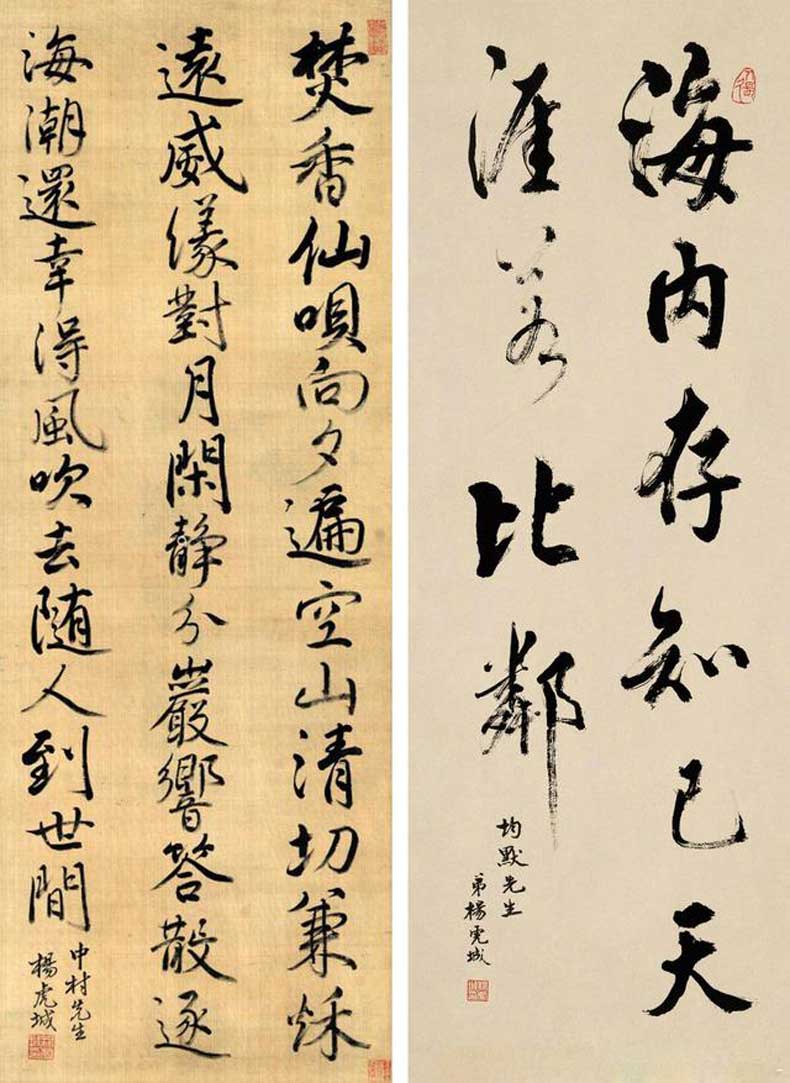 海内存知己天
涯若比鄰
均默先生
弟楊虎城
焚香仙唄向夕遍空山清切兼秋
遠威儀對月閑静分巖響答散逐
海潮還幸得風吹去随人到世間
中村先生
楊虎城